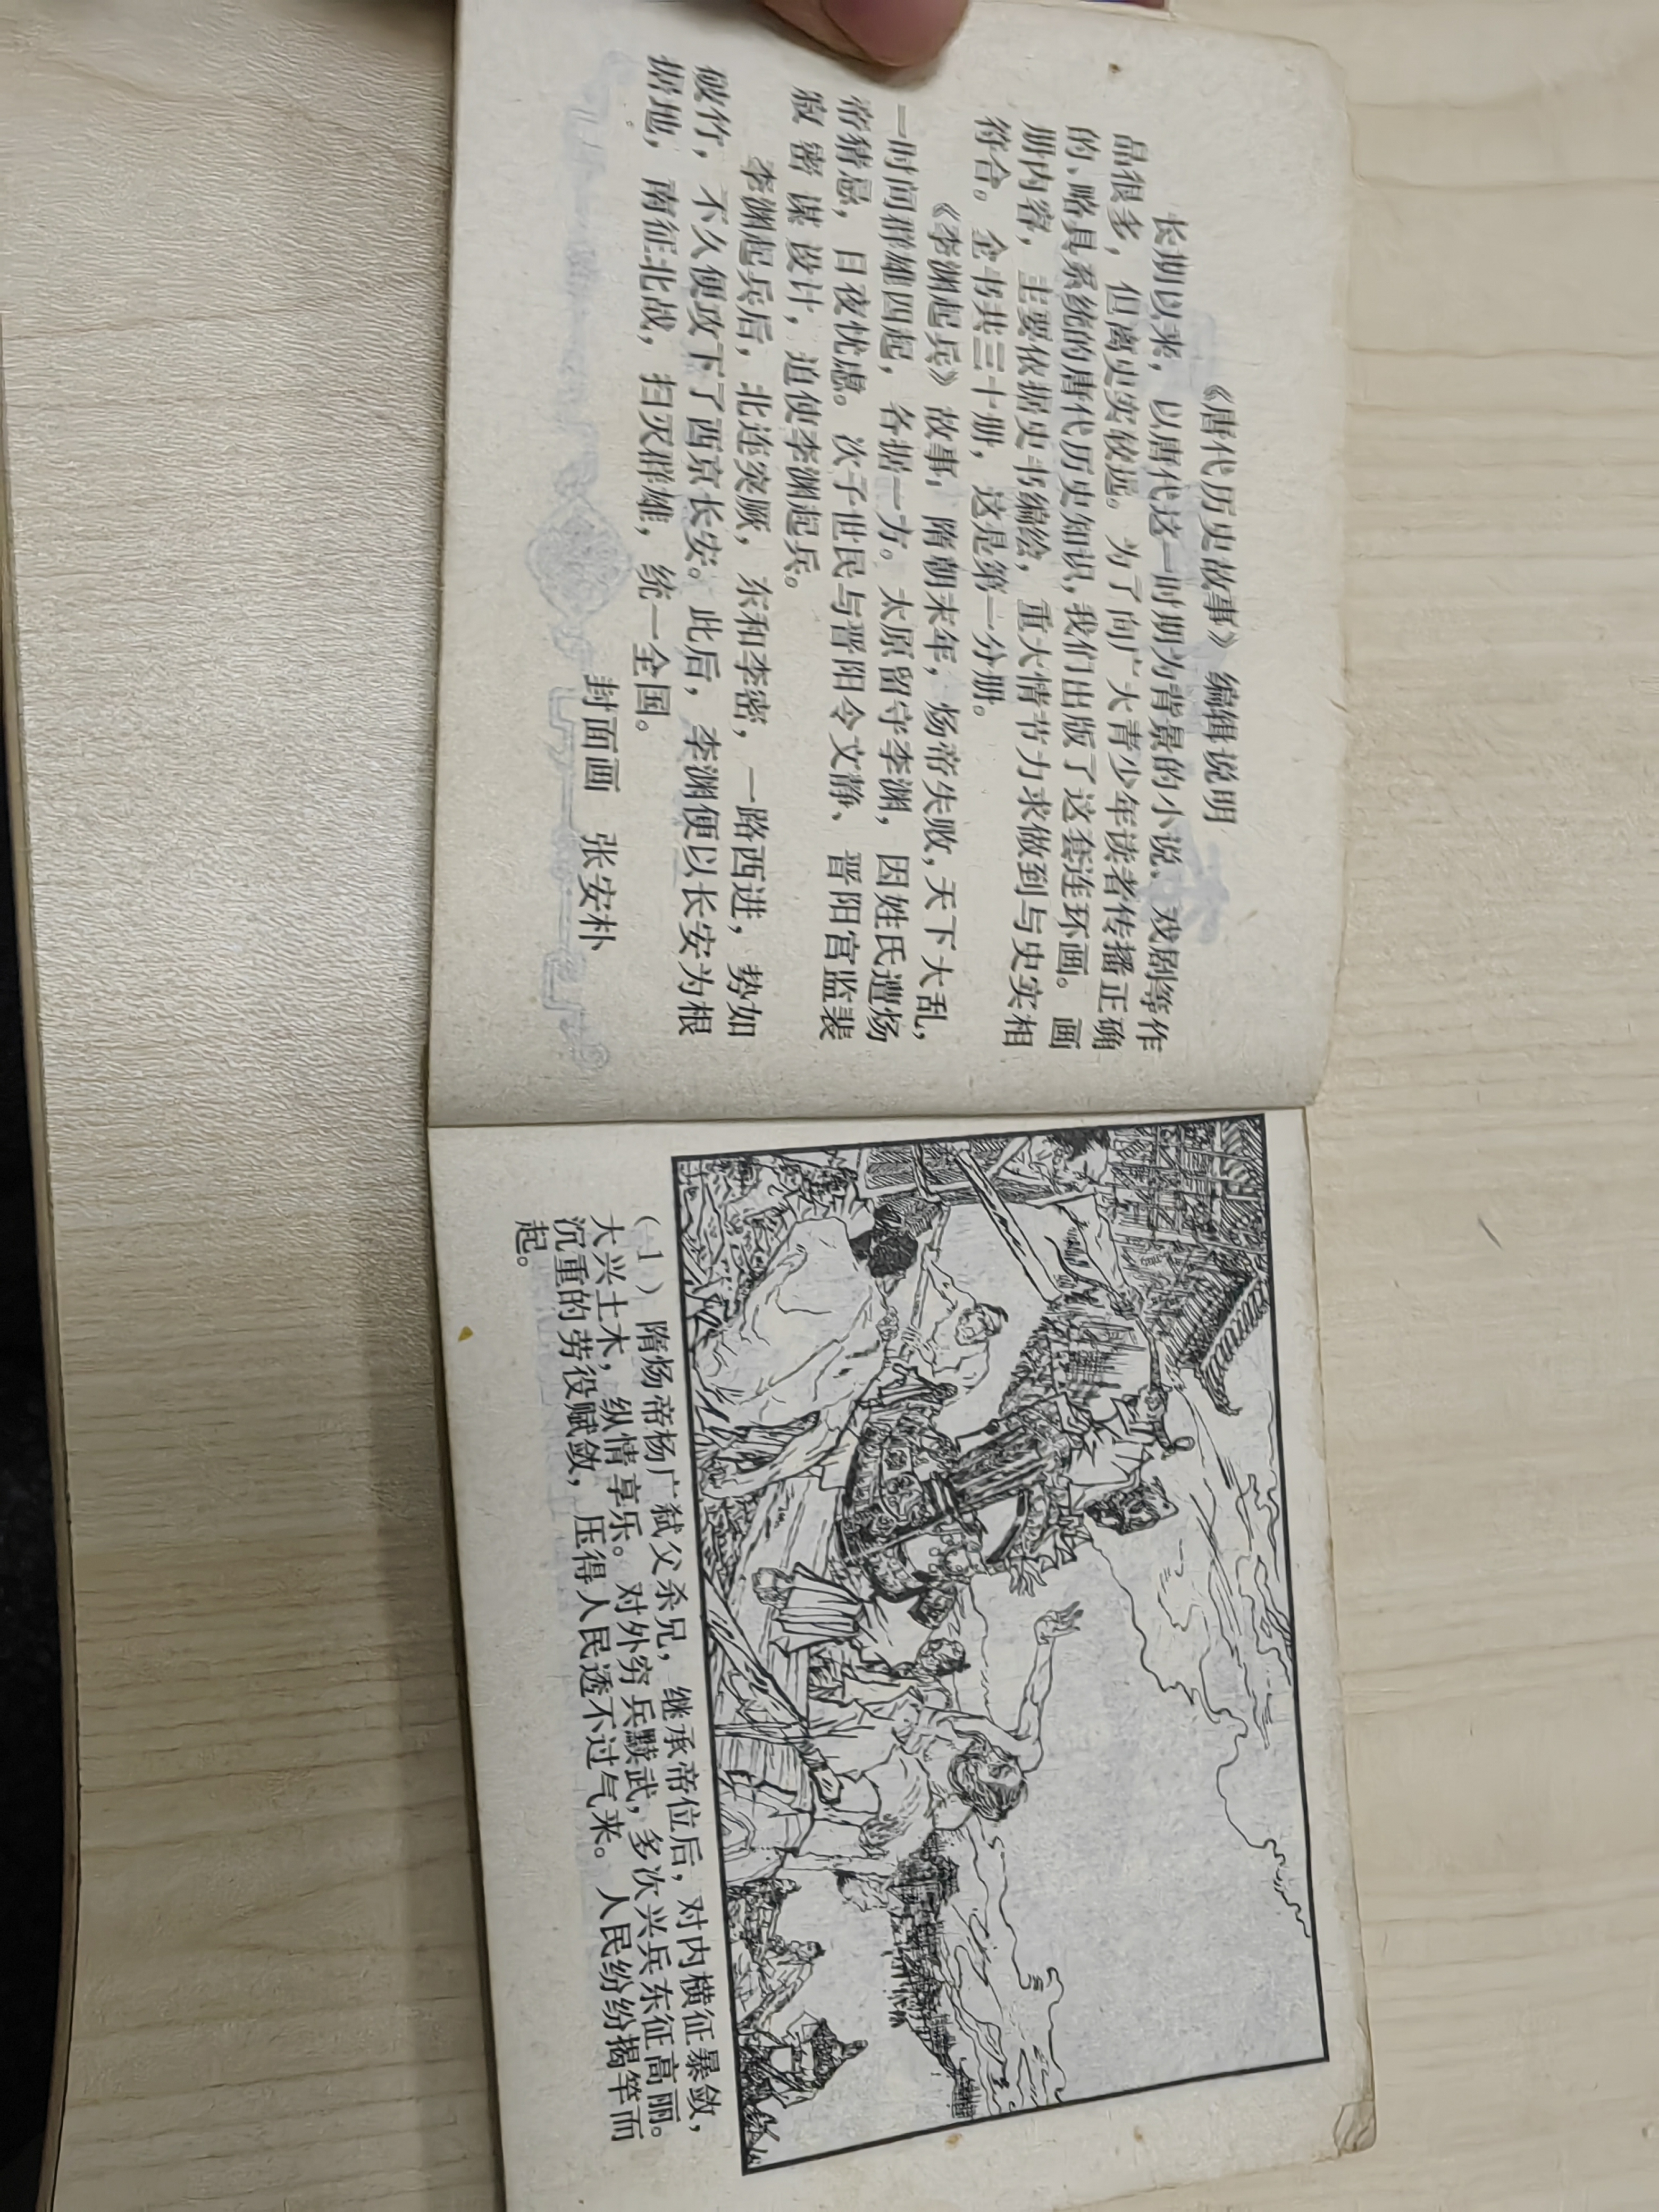 《唐代历史故事》编辑说明
长期以来，以唐代这一时期为背景的小说、戏剧等作
品很多，但离史实较远。为了向广大青少年读者传播正确
的、略具系统的唐代历史知识，我们出版了这套连环画。画
册内容，主要依据史书编绘，重大情节力求做到与史实相
符合。全书共三十册，这是第一分册。
《李渊起兵》故事，隋朝末年，炀帝失败，天下大乱，
一时间群雄四起，各据一方。太原留守李渊，因姓氏遭炀
帝猜忌，日夜忧虑。次子世民与晋阳令文静、晋阳宫监裴
寂密谋设计，迫使李渊起兵。
李渊起兵后，北连突厥，东和李密，一路西进，势如
破竹，不久便攻下了西京长安。此后，李渊便以长安为根
据地，南征北战，扫灭群雄，统一全国。
封面画　张安朴
（1）隋炀帝杨广弑父杀兄，继承帝位后，对内横征暴敛，
大兴土木，纵情享乐。对外穷兵黩武，多次兴兵东征高丽。
沉重的劳役赋敛，压得人民透不过气来。人民纷纷揭竿而
起。